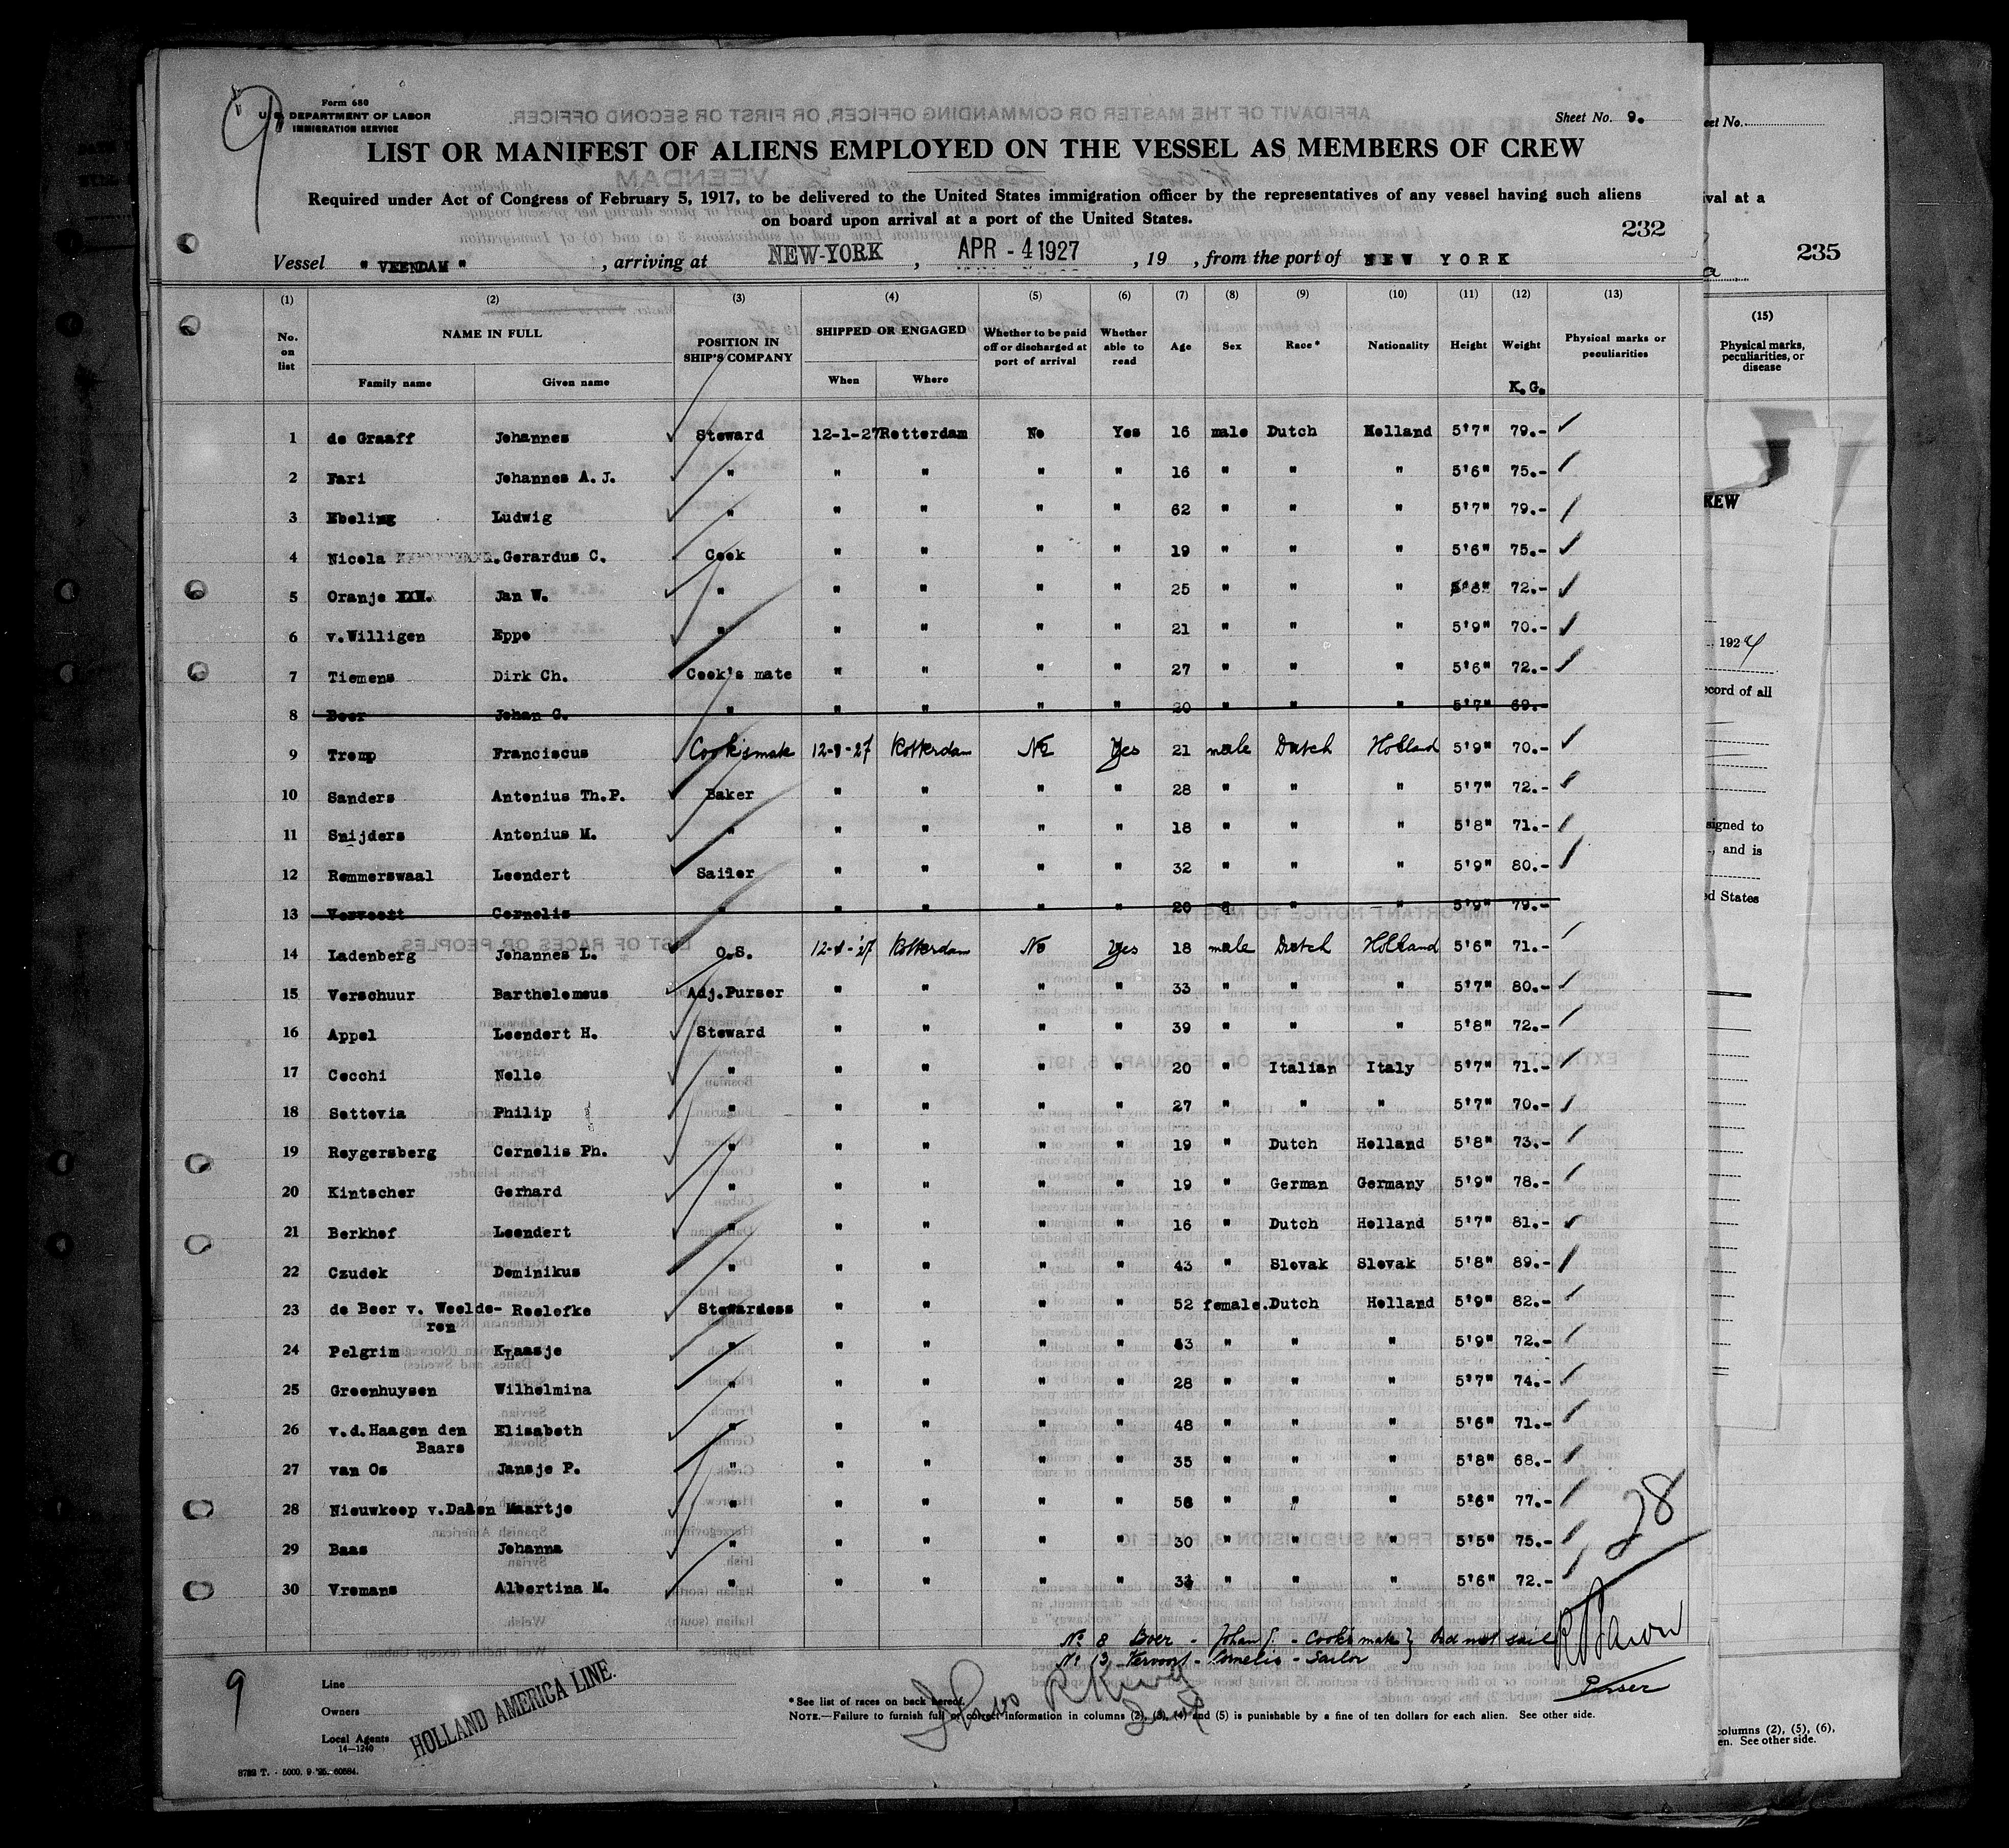 Form 680
U. S. DEPARTMENT OF LABOR
IMMIGRATION SERVICE
Sheet No. 9.
LIST OR MANIFEST OF ALIENS EMPLOYED ON THE VESSEL AS MEMBERS OF CREW
Required under Act of Congress of February 5, 1917, to be delivered to the United States immigration officer by the representatives of any vessel having such aliens
on board upon arrival at a port of the United States.
232
Vessel "VEENDAM", arriving at NEW-YORK, APR - 4 1927, 19 , from the port of NEW YORK
(1) (2) (3) (4) (5) (6) (7) (8) (9) (10) (11) (12) (13)
No. on list NAME IN FULL Family name Given name POSITION IN SHIP'S COMPANY SHIPPED OR ENGAGED When Where Whether to be paid off or discharged at port of arrival Whether able to read Age Sex Race* Nationality Height Weight K.G. Physical marks or peculiarities
1 de Graaff Johannes Steward 12-1-27 Rotterdam No Yes 16 male Dutch Holland 5'7" 79.-
2 Fari Johannes A.J. " " " " " 16 " " " 5'6" 75.-
3 Ebeling Ludwig " " " " " 62 " " " 5'7" 79.-
4 Nicola Gerardus C. Cook " " " " 19 " " " 5'6" 75.-
5 Oranje Jan W. " " " " " 25 " " " 72.-
6 v.Willigen Eppo " " " " " 21 " " " 5'9" 70.-
7 Tiemens Dirk Ch. Cook's mate " " " " 27 " " " 5'6" 72.-
8 Boer Johan C. " " " " " 20 " " " 5'7" 69.-
9 Tromp Franciscus Cook's mate 12-1-27 Rotterdam No Yes 21 male Dutch Holland 5'9" 70.-
10 Sanders Antonius Th.P. Baker " " " " 28 " " " 5'7" 72.-
11 Snijders Antonius M. " " " " " 18 " " " 5'8" 71.-
12 Remmerswaal Leendert Sailor " " " " 32 " " " 5'9" 80.-
13 Vervoort Cornelis " " " " " 20 " " " 5'9" 79.-
14 Ladenberg Johannes L. O.S. 12-1-'27 Rotterdam No Yes 18 male Dutch Holland 5'6" 71.-
15 Verschuur Bartholomeus Adj.Purser " " " " 33 " " " 5'7" 80.-
16 Appel Leendert H. Steward " " " " 39 " " " 5'8" 72.-
17 Cecchi Nello " " " " " 20 " Italian Italy 5'7" 71.-
18 Settovia Philip " " " " " 27 " " " 5'7" 70.-
19 Reygersberg Cornelis Ph. " " " " " 19 " Dutch Holland 5'8" 73.-
20 Kintscher Gerhard " " " " " 19 " German Germany 5'9" 78.-
21 Berkhof Leendert " " " " " 16 " Dutch Holland 5'7" 81.-
22 Czudek Dominikus " " " " " 43 " Slovak Slovak 5'8" 89.-
23 de Beer v. Weelde-ren Roelofke Stewardess " " " " 52 female. Dutch Holland 5'9" 82.-
24 Pelgrim Klaasje " " " " " " " " 5'9" 72.-
25 Groenhuysen Wilhelmina " " " " " 28 " " " 5'7" 74.-
26 v.d.Haagen den Baars Elisabeth " " " " " 48 " " " 5'6" 71.-
27 van Os Jansje P. " " " " " 35 " " " 5'8" 68.-
28 Nieuwkoop v.Dalen Maartje " " " " " " " " 5'6" 77.-
29 Baas Johanna " " " " " 30 " " " 5'5" 75.-
30 Vremans Albertina M. " " " " " " " " 5'6" 72.-
28
No 8 Boer - Johan C. - Cook's mate } Did not sail
No 13 Vervoort - Cornelis - Sailor
Purser
9
Line
Owners
Local Agents
HOLLAND AMERICA LINE.
14—1240
* See list of races on back hereof.
NOTE.—Failure to furnish full or correct information in columns (2), (3), (4) and (5) is punishable by a fine of ten dollars for each alien. See other side.
8783 T. - 5000. 9-'25. 60584.
eet No.
ival at a
235
(15)
Physical marks, peculiarities, or disease
REW
1924
ecord of all
signed to
, and is
d States
columns (2), (5), (6),
en. See other side.